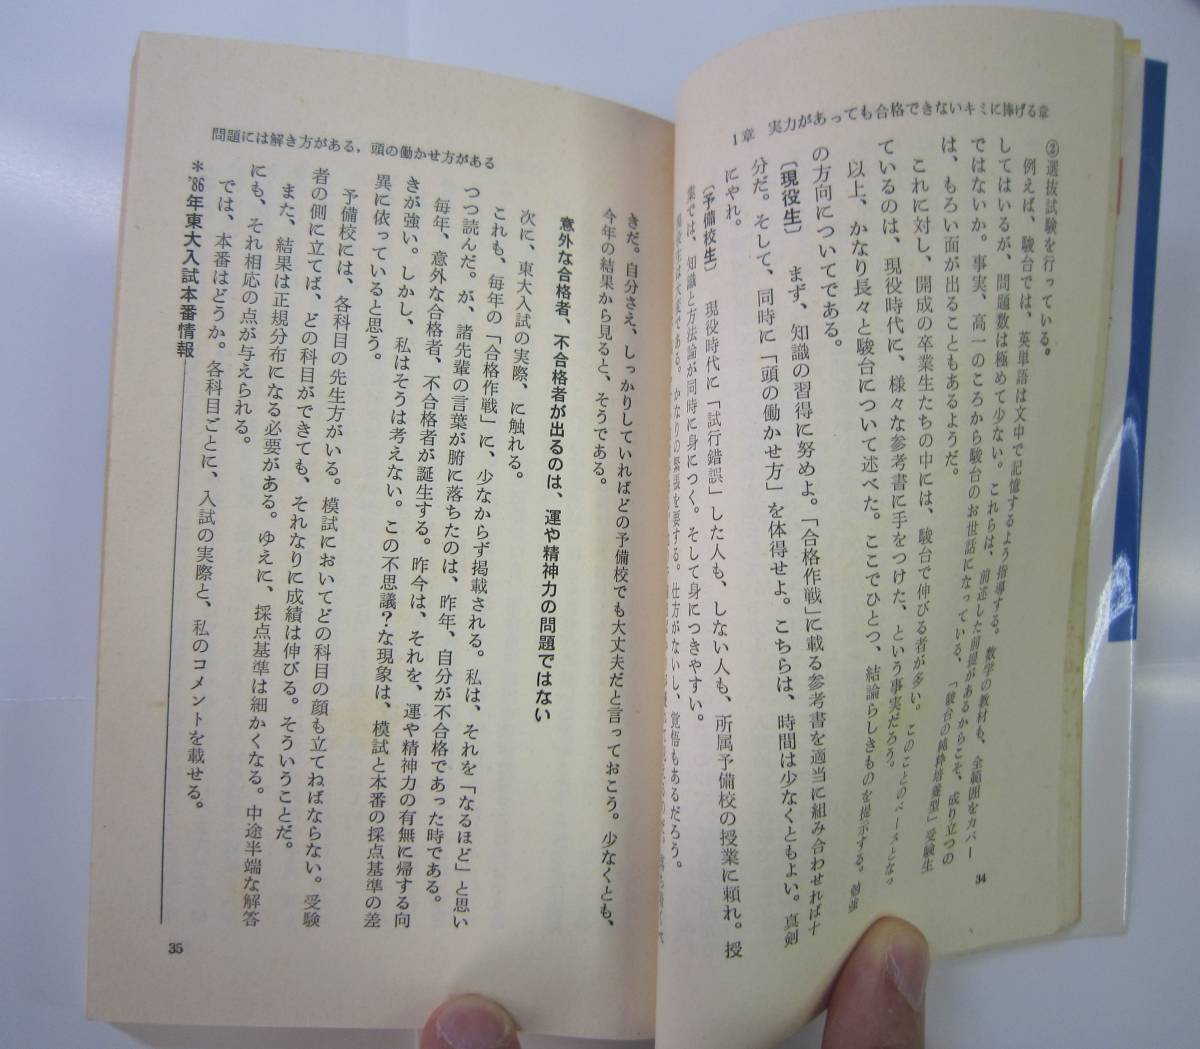 1章 実力があっても合格できないキミに捧げる章
②選抜試験を行っている。
例えば、駿台では、英単語は文中で記憶するよう指導する。数学の教材も、全範囲をカバー
してはいるが、問題数は極めて少ない。これらは、前述した前提があるからこそ、成り立つの
ではないか。事実、高一のころから駿台のお世話になっている、「駿台の純粋培養型」受験生
は、もろい面が出ることもあるようだ。
これに対し、開成の卒業生たちの中には、駿台で伸びる者が多い。このことのベースとなっ
ているのは、現役時代に、様々な参考書に手をつけた、という事実だろう。
以上、かなり長々と駿台について述べた。ここでひとつ、結論らしきものを提示する。勉強
の方向についてである。
〔現役生〕 まず、知識の習得に努めよ。「合格作戦」に載る参考書を適当に組み合わせれば十
分だ。そして、同時に「頭の働かせ方」を体得せよ。こちらは、時間は少なくともよい。真剣
にやれ。
〔予備校生〕 現役時代に「試行錯誤」した人も、しない人も、所属予備校の授業に頼れ。授
業では、知識と方法論が同時に身につく。そして身につきやすい。
は大変である。かなりの緊張を要する。仕方がないし、覚悟もあるだろう。
34
問題には解き方がある，頭の働かせ方がある
きだ。自分さえ、しっかりしていればどの予備校でも大丈夫だと言っておこう。少なくとも、
今年の結果から見ると、そうである。
意外な合格者、不合格者が出るのは、運や精神力の問題ではない
次に、東大入試の実際、に触れる。
これも、毎年の「合格作戦」に、少なからず掲載される。私は、それを「なるほど」と思い
つつ読んだ。が、諸先輩の言葉が腑に落ちたのは、昨年、自分が不合格であった時である。
毎年、意外な合格者、不合格者が誕生する。昨今は、それを、運や精神力の有無に帰する向
きが強い。しかし、私はそうは考えない。この不思議？な現象は、模試と本番の採点基準の差
異に依っていると思う。
予備校には、各科目の先生方がいる。模試においてどの科目の顔も立てねばならない。受験
者の側に立てば、どの科目ができても、それなりに成績は伸びる。そういうことだ。
また、結果は正規分布になる必要がある。ゆえに、採点基準は細かくなる。中途半端な解答
にも、それ相応の点が与えられる。
では、本番はどうか。各科目ごとに、入試の実際と、私のコメントを載せる。
＊'86年東大入試本番情報
35